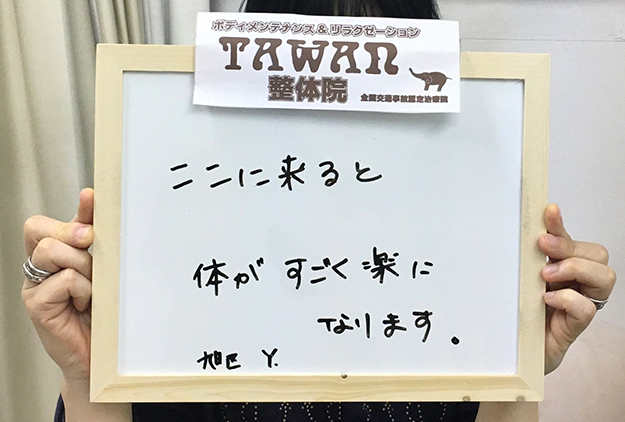 ボディメンテナンス&リラクゼーション
TAWAN
整体院
全国交通事故認定治療院
ここに来ると
体が すごく楽に
なります。
旭区 Y.